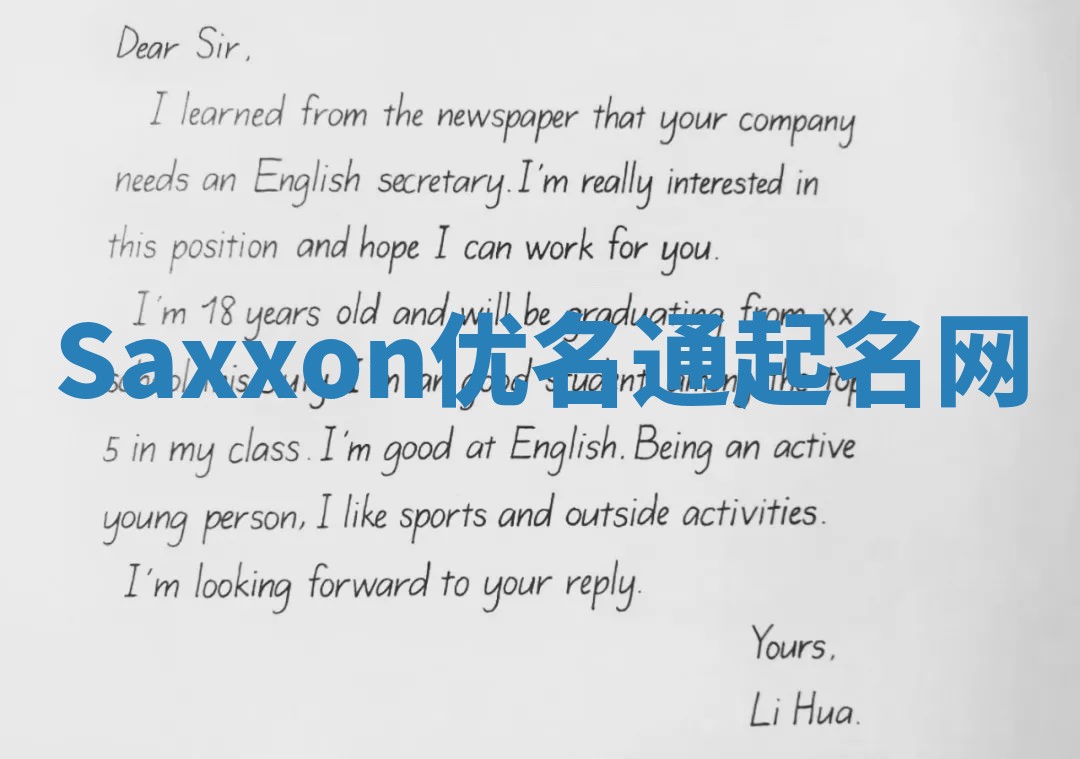 Dear Sir,
I learned from the newspaper that your company
needs an English secretary. I'm really interested in
this position and hope I can work for you.
I'm 18 years old and will be graduating from xx
Saxxon优名通起名网
school this July. I'm a good student among the top
5 in my class. I'm good at English. Being an active
young person, I like sports and outside activities.
I'm looking forward to your reply.
Yours,
Li Hua.